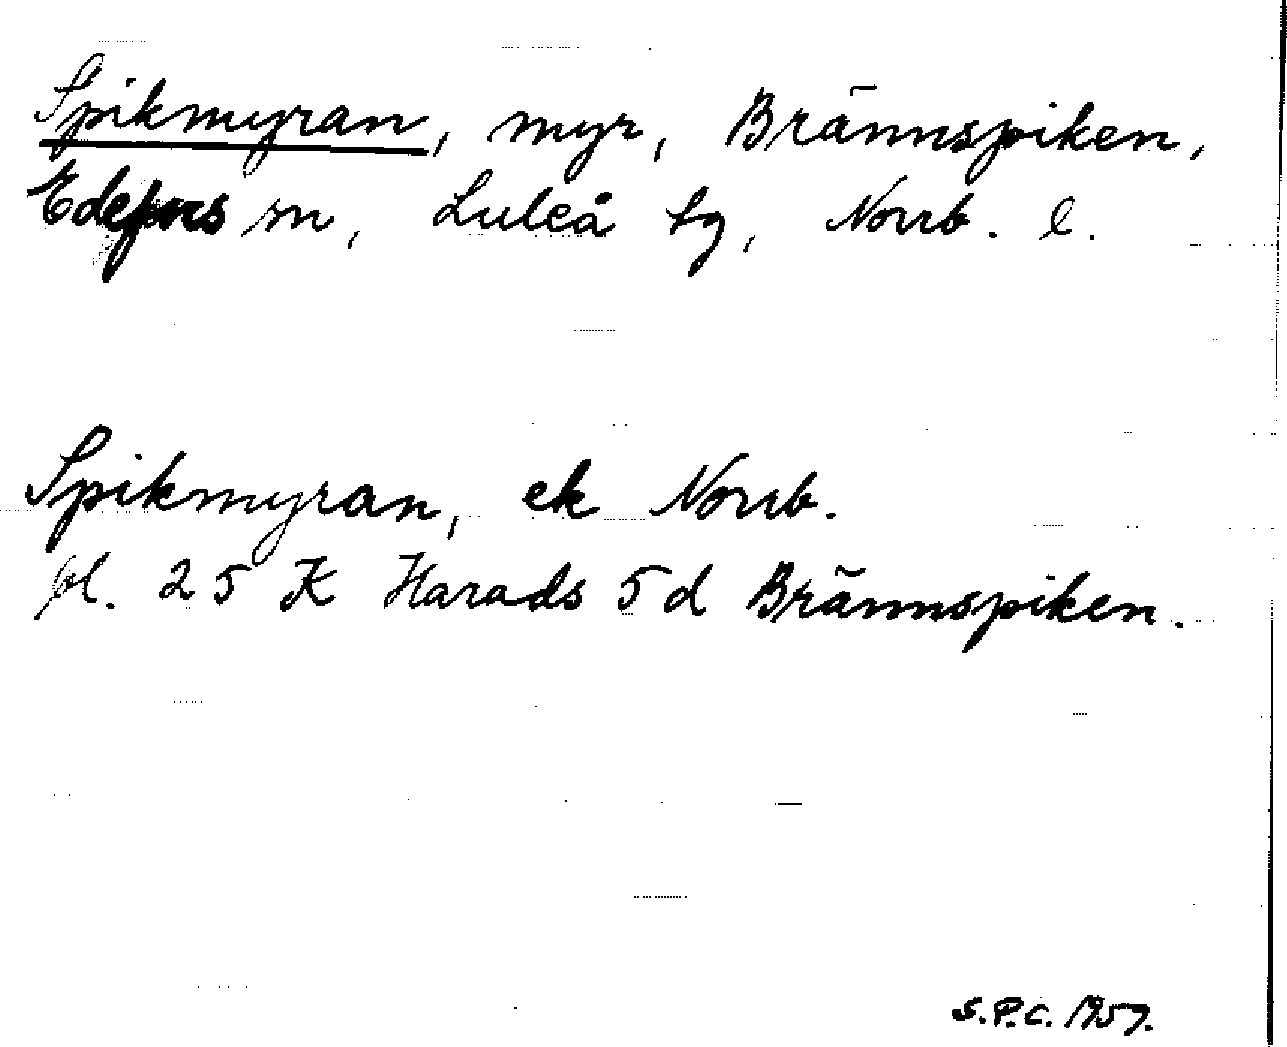 Spikmyran, myr, Brännspiken,
Edefors sn, Luleå tg, Norrb. l.
Spikmyran, ek Norrb.
bl. 25 K Harads 5 d Brännspiken.
S.P.C. 1957.